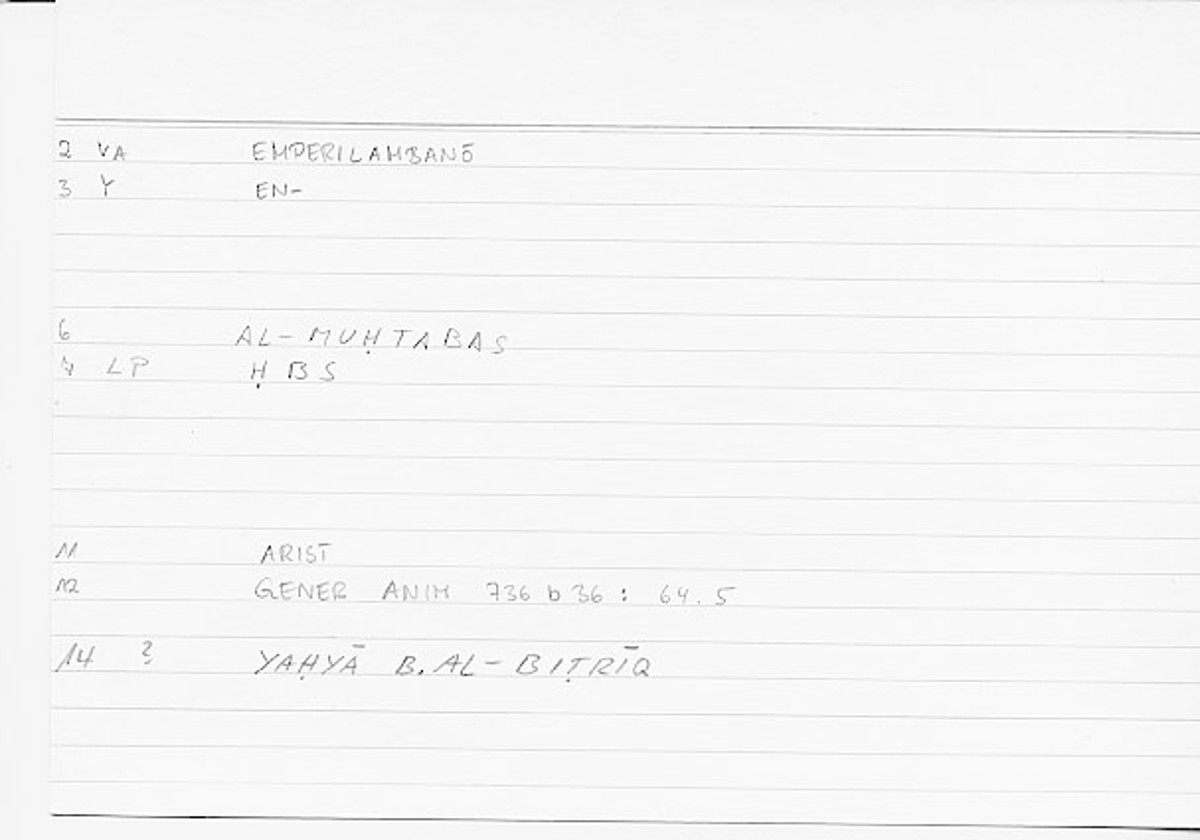 2 VA EMPERILAMBANŌ
3 Y EN-
6 AL-MUḤTABAS
7 LP ḤBS
11 ARIST
12 GENER ANIM 736 b 36 : 64.5
14 ? YAḤYĀ B. AL-BIṬRĪQ